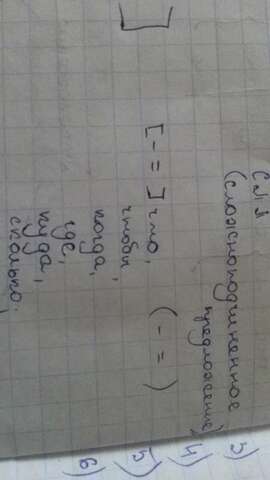 СПП
(сложноподчиненное
предложение)
[- =] что, (- =)
чтобы,
когда,
где,
куда,
сколько.
3)
4)
5)
6)